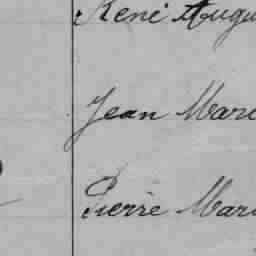 René Augu
Jean Mar
Pierre Mar